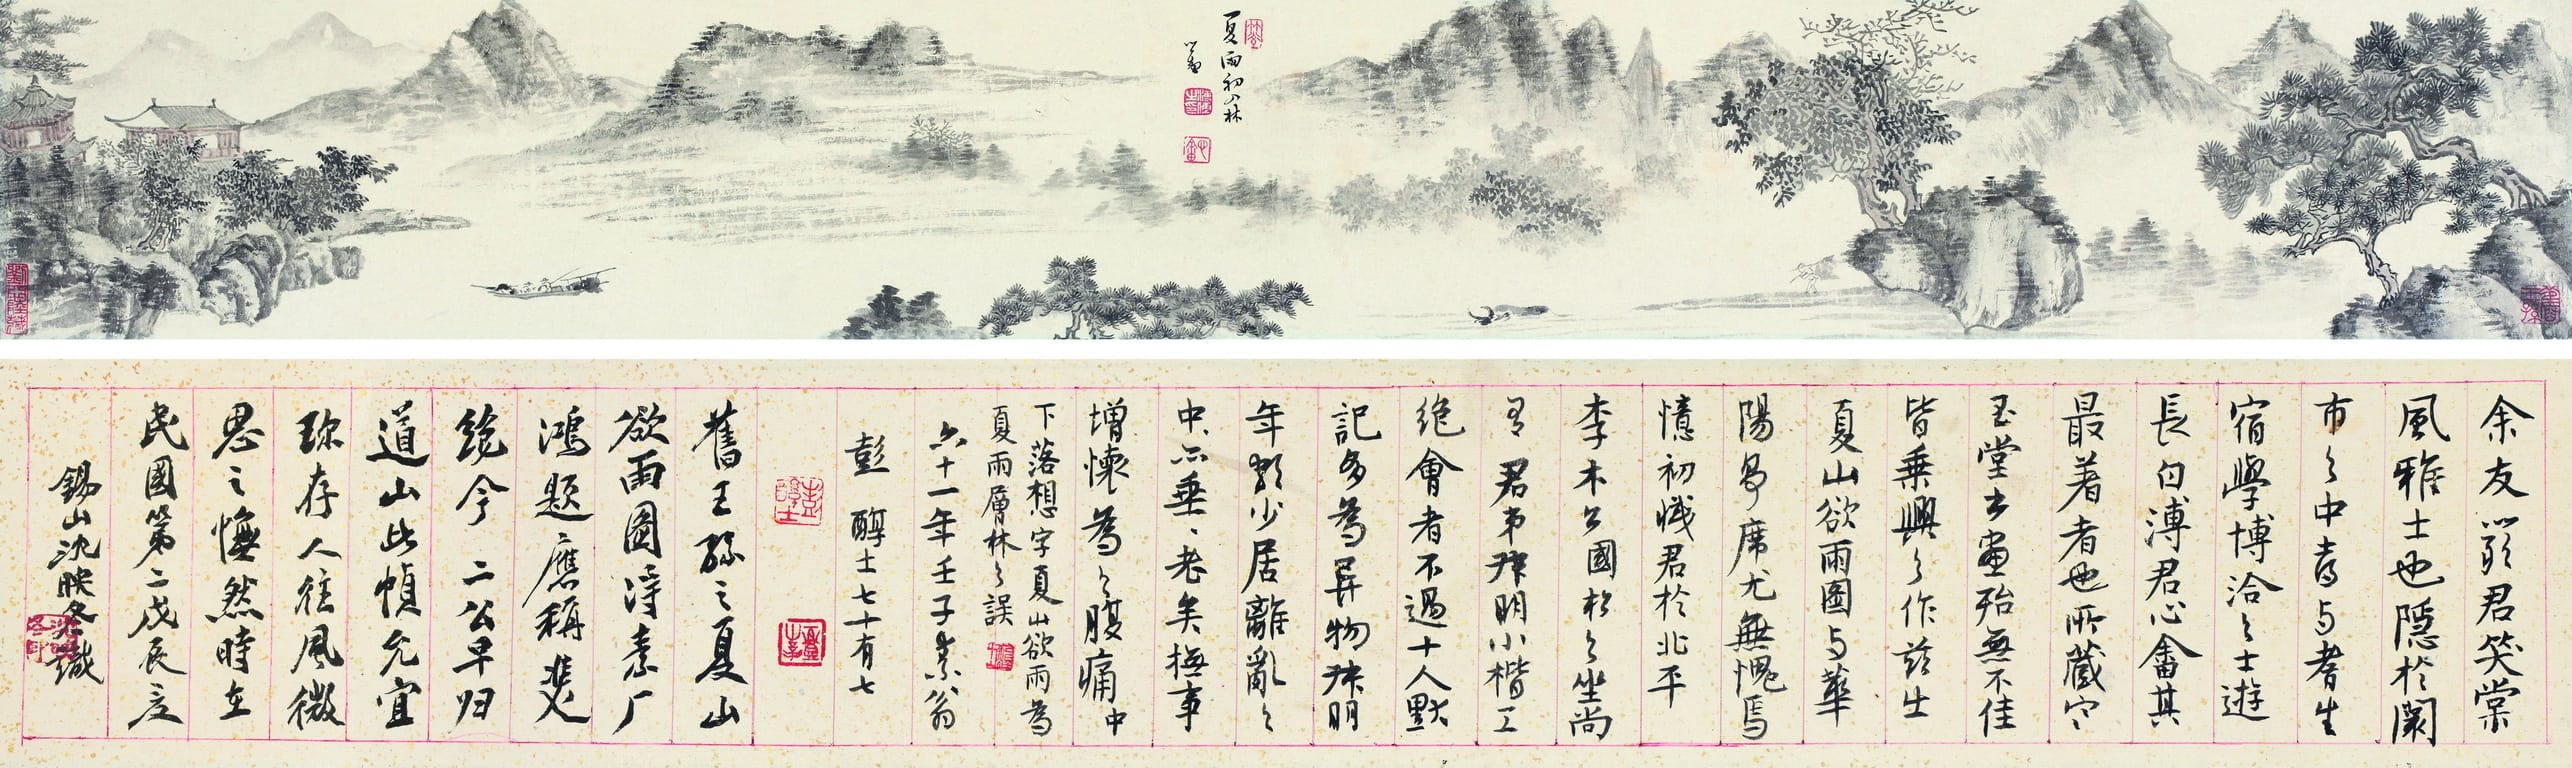 夏雨初入林
心畬
余友
君笑棠
風雅士也隱於闤
市之中喜與耆生
宿學博洽之士遊
長白溥君心畬其
最著者也所藏寒
玉堂書畫殆無不佳
皆乘興之作茲出
夏山欲雨圖與華
陽
席尤無愧焉
憶初識君於北平
李木公國松之坐尚
有君弟
明小楷工
絕會者不過十人默
記多為異物
明
年
少居離亂之
中亦垂垂老矣撫事
增懷為之腹痛中
下落想字夏山欲雨為
夏雨層林之誤
六十一年壬子素翁
彭醇士七十有七
舊王孫之夏山
欲雨圖詩素厂
鴻題應稱雙
絕今二公早归
道山此幀允宜
珍存人往風微
思之憮然時在
民國第二戊辰
錫山沈映冬識